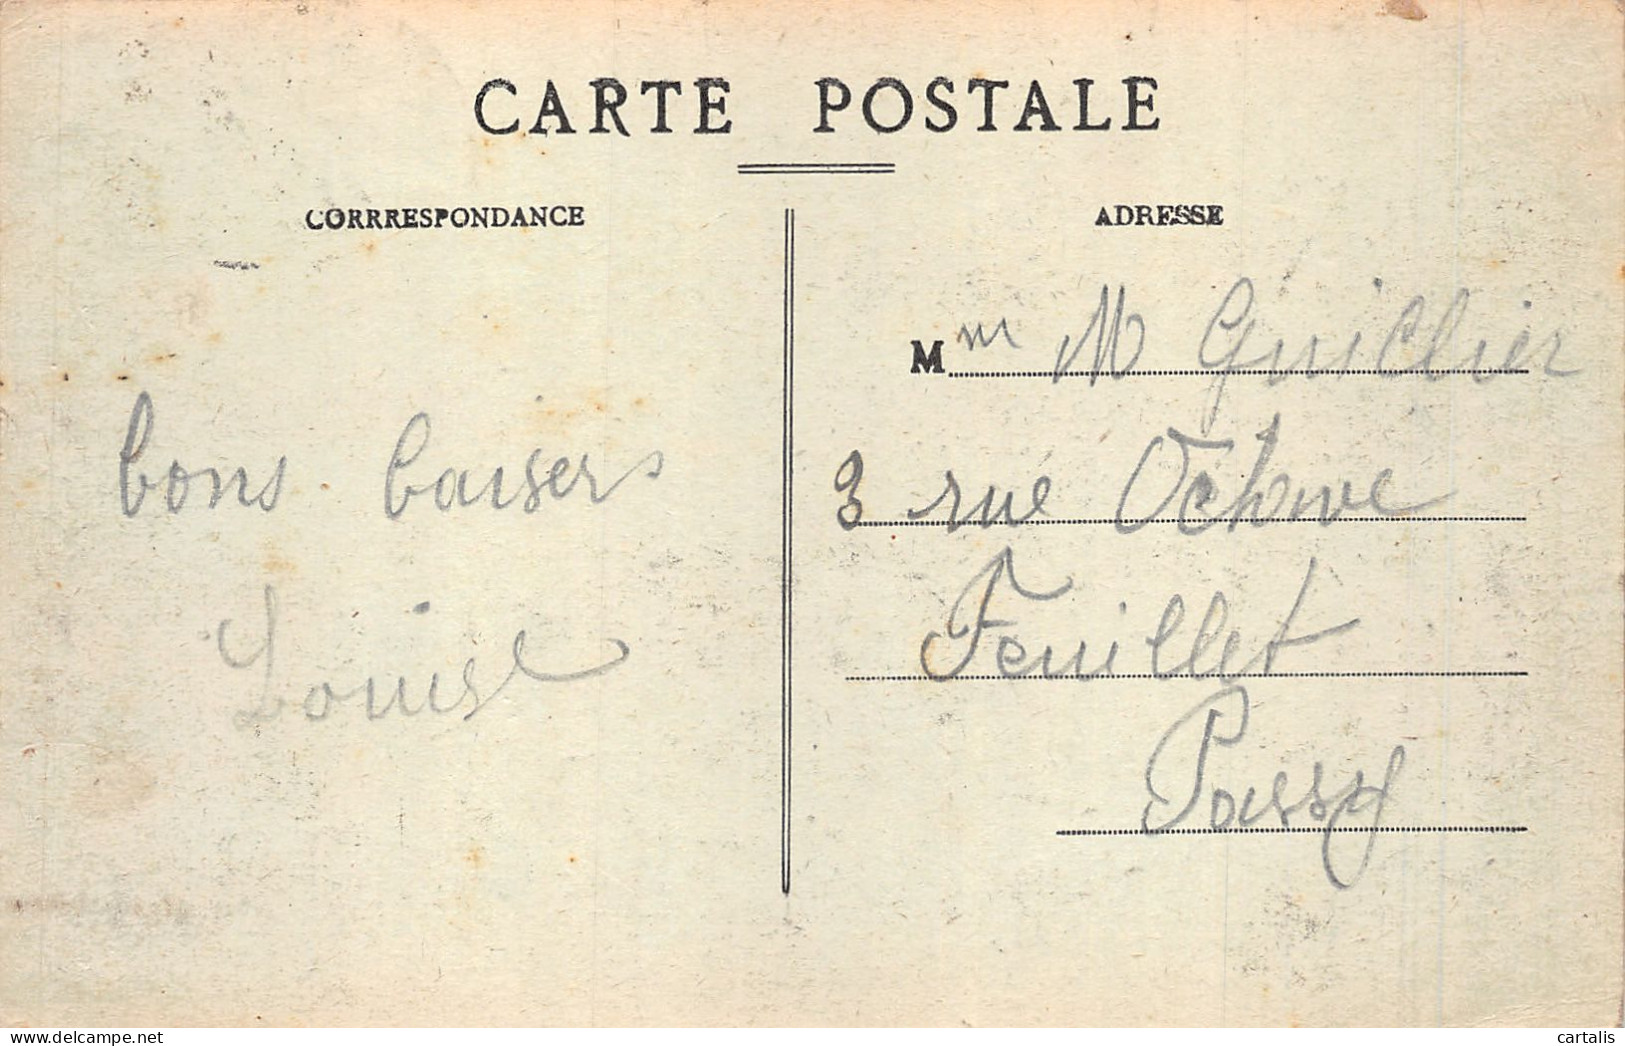 CARTE POSTALE
CORRRESPONDANCE
ADRESSE
bons baisers
Louise
Mm M Guillier
3 rue Octave
Feuillet
Passy
delcampe.net
cartalis